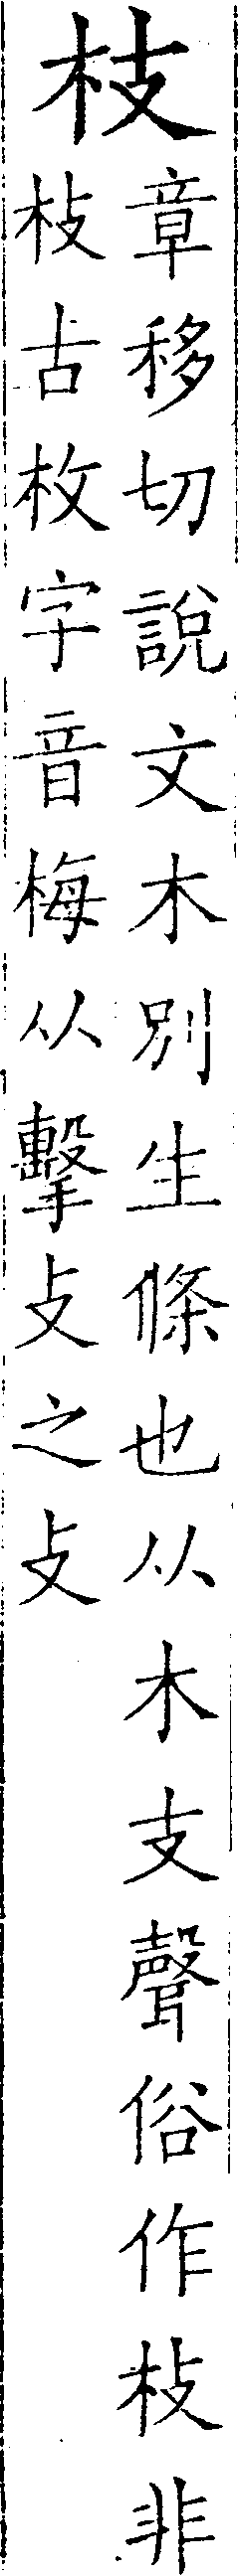 枝
章移切說文木別生條也从木支聲俗作⿰木攴非
⿰木攴古枚字音梅从擊攴之攴